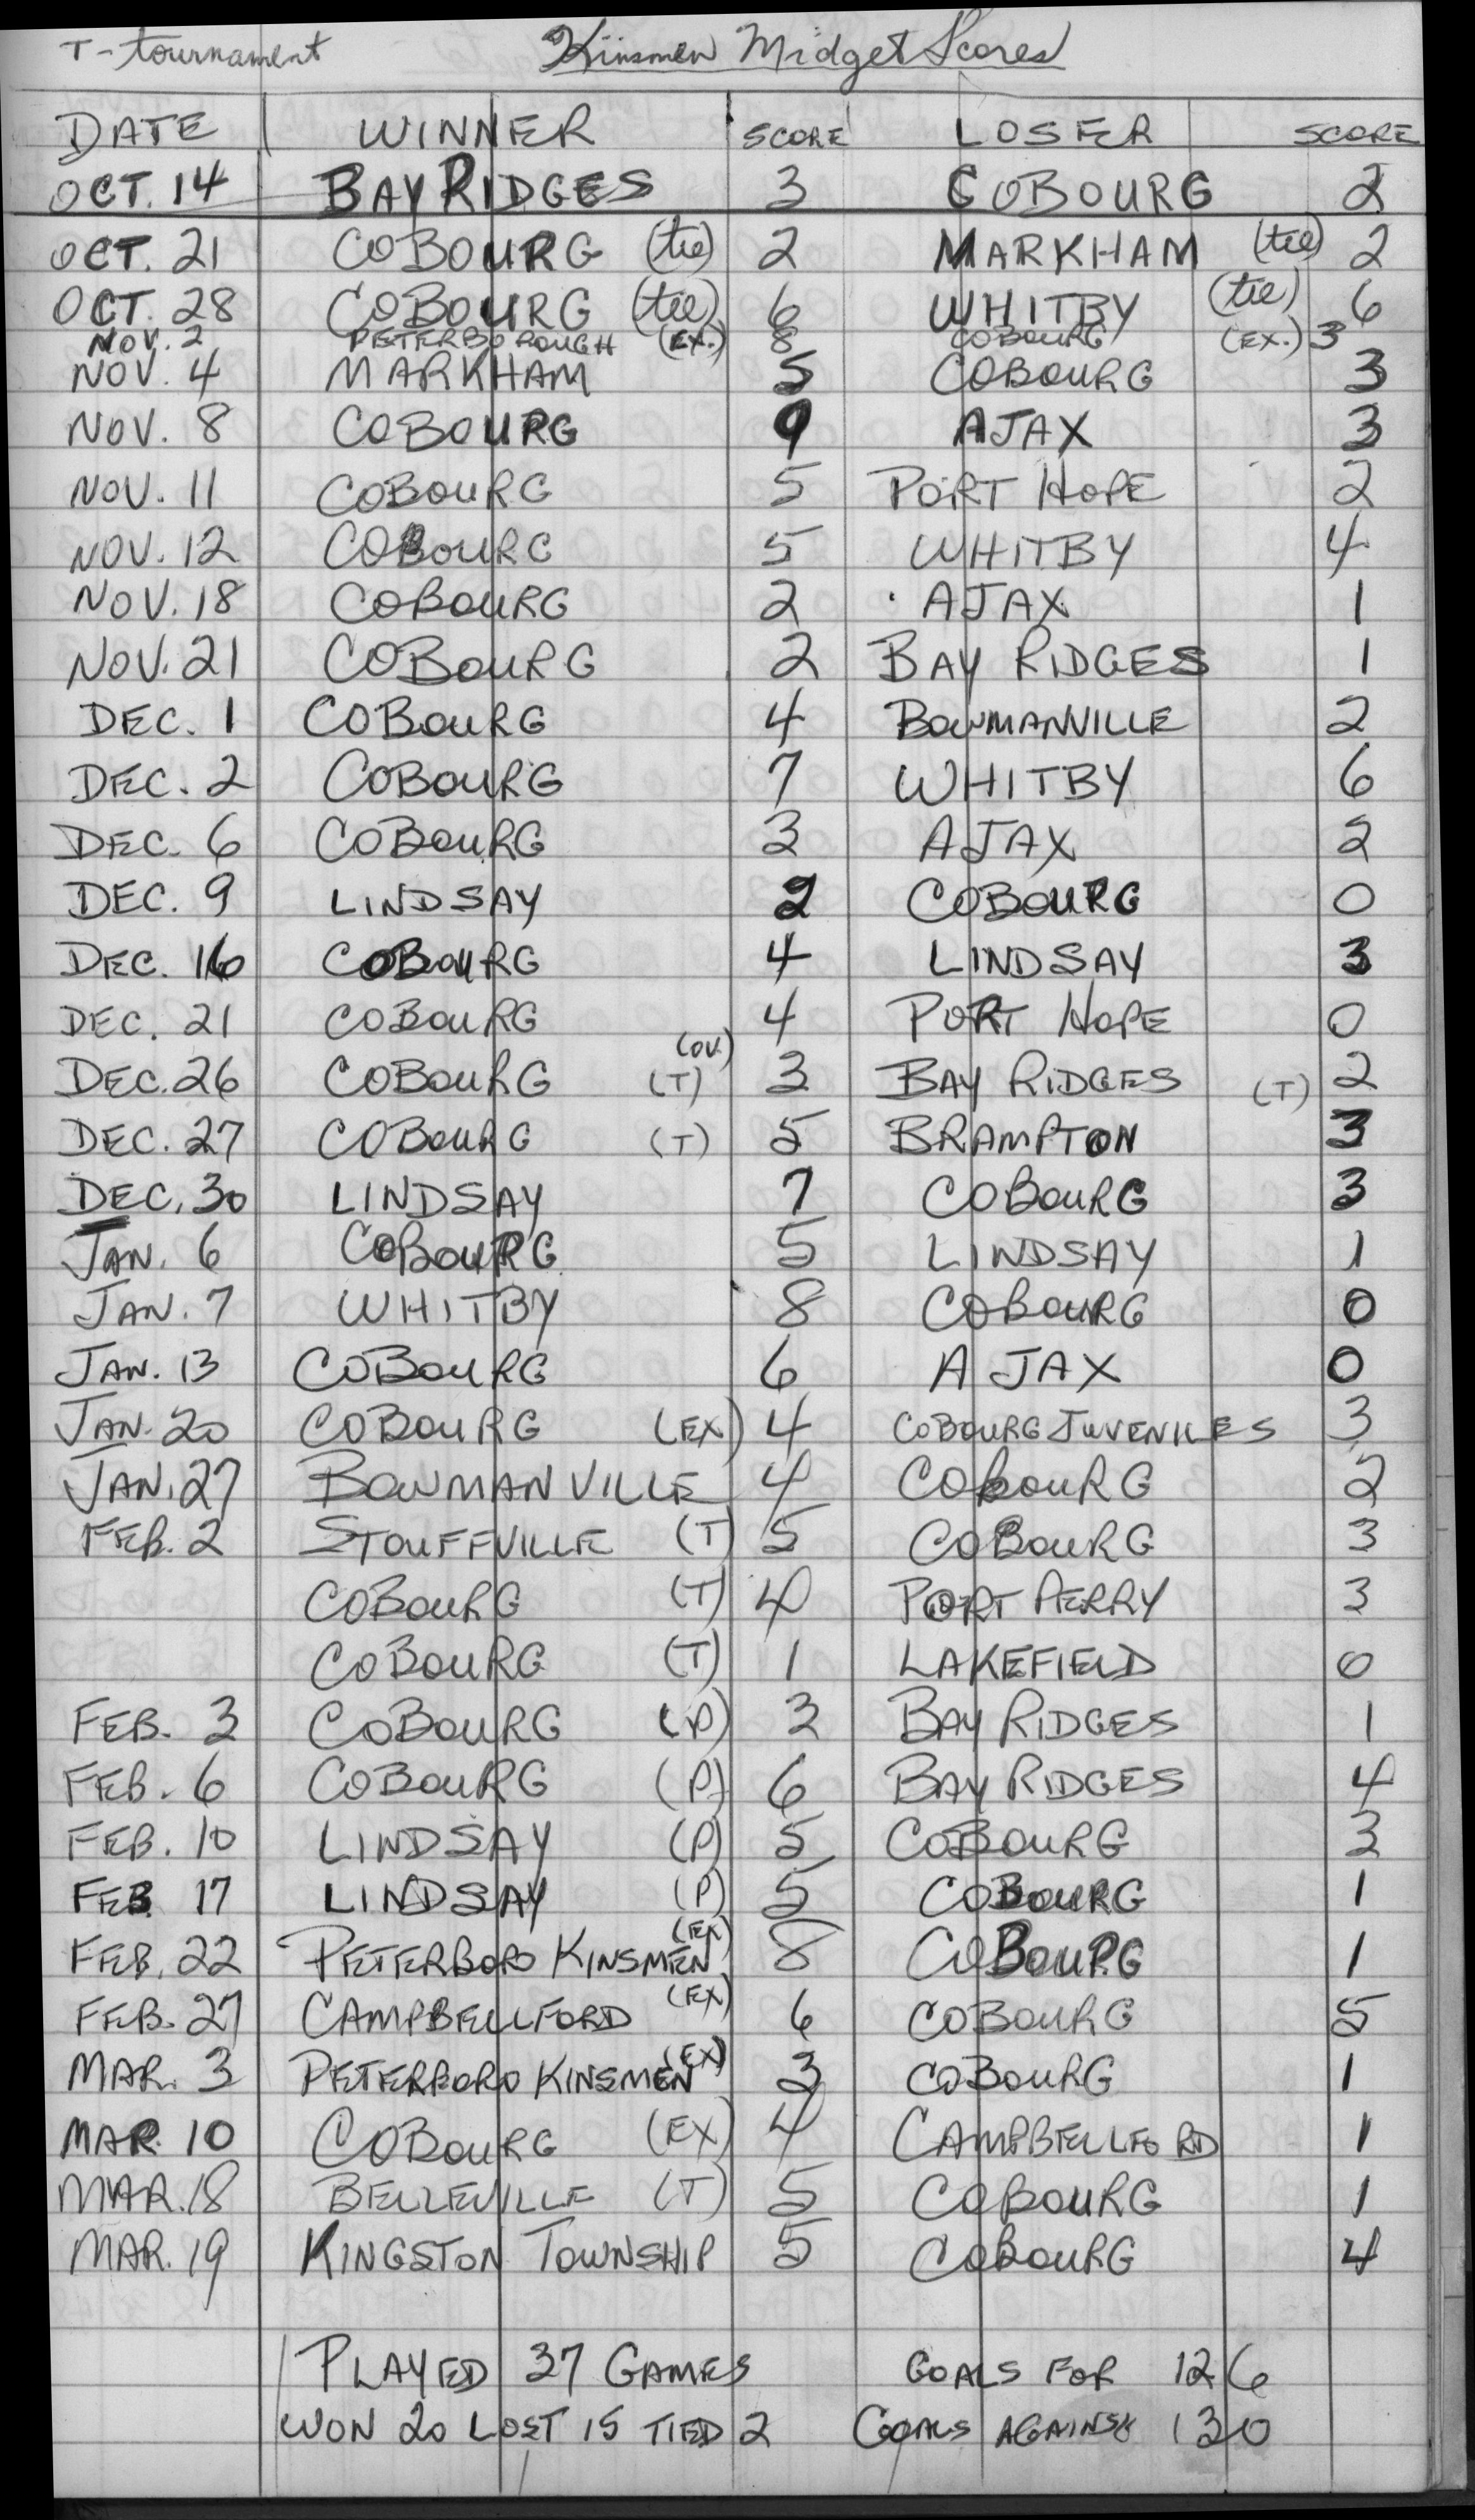 T-tournament Kinsmen Midget Scores
DATE WINNER SCORE LOSER SCORE
OCT. 14 BAY RIDGES 3 COBOURG 2
OCT. 21 COBOURG (tie) 2 MARKHAM (tie) 2
OCT. 28 COBOURG (tie) 6 WHITBY (tie) 6
NOV. 2 PETERBOROUGH (EX.) 8 COBOURG (EX.) 3
NOV. 4 MARKHAM 5 COBOURG 3
NOV. 8 COBOURG 9 AJAX 3
NOV. 11 COBOURG 5 PORT HOPE 2
NOV. 12 COBOURG 5 WHITBY 4
NOV. 18 COBOURG 2 AJAX 1
NOV. 21 COBOURG 2 BAY RIDGES 1
DEC. 1 COBOURG 4 BOWMANVILLE 2
DEC. 2 COBOURG 7 WHITBY 6
DEC. 6 COBOURG 3 AJAX 2
DEC. 9 LINDSAY 2 COBOURG 0
DEC. 16 COBOURG 4 LINDSAY 3
DEC. 21 COBOURG 4 PORT HOPE 0
DEC. 26 COBOURG (OV.) (T) 3 BAY RIDGES (T) 2
DEC. 27 COBOURG (T) 5 BRAMPTON 3
DEC. 30 LINDSAY 7 COBOURG 3
JAN. 6 COBOURG 5 LINDSAY 1
JAN. 7 WHITBY 8 COBOURG 0
JAN. 13 COBOURG 6 AJAX 0
JAN. 20 COBOURG (EX) 4 COBOURG JUVENILES 3
JAN. 27 BOWMANVILLE 4 COBOURG 2
FEB. 2 STOUFFVILLE (T) 5 COBOURG 3
COBOURG (T) 4 PORT PERRY 3
COBOURG (T) 1 LAKEFIELD 0
FEB. 3 COBOURG (P) 3 BAY RIDGES 1
FEB. 6 COBOURG (P) 6 BAY RIDGES 4
FEB. 10 LINDSAY (P) 5 COBOURG 3
FEB. 17 LINDSAY (P) 5 COBOURG 1
FEB. 22 PETERBORO KINSMEN (EX) 8 COBOURG 1
FEB. 27 CAMPBELLFORD (EX) 6 COBOURG 5
MAR. 3 PETERBORO KINSMEN (EX) 3 COBOURG 1
MAR. 10 COBOURG (EX) 4 CAMPBELLFORD 1
MAR. 18 BELLEVILLE (T) 5 COBOURG 1
MAR. 19 KINGSTON TOWNSHIP 5 COBOURG 4
PLAYED 37 GAMES GOALS FOR 126
WON 20 LOST 15 TIED 2 GOALS AGAINST 130